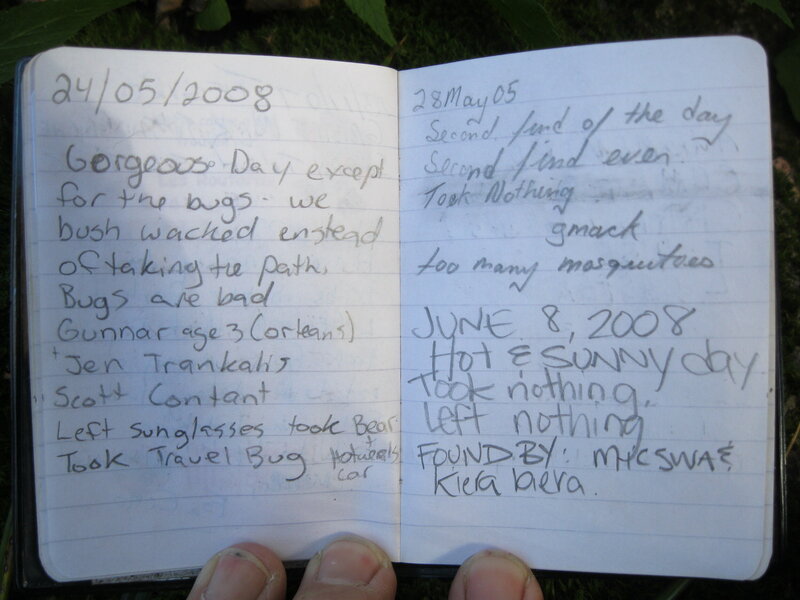 24/05/2008
Gorgeous Day except
for the bugs - we
bush wacked enstead
of taking the path.
Bugs are bad
Gunnar age 3 (orleans)
+ Jen Trankalis
Scott Contant
Left sunglasses took Bear
+
Took Travel Bug Hotwheels
car
28 May 05
Second find of the day
Second find even.
Took Nothing
gmack
too many mosquitoes
JUNE 8, 2008
Hot & SUNNY day.
Took nothing.
Left nothing
FOUND BY: MIC SWA &
Kiera biera.